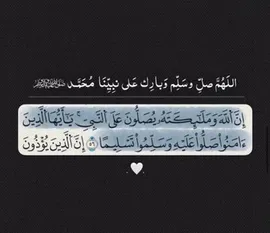 اللهُمَّ صلِّ وسَلِّم وَبارِك على نبِيِّنا مُحَمَّد ﷺ
إِنَّ ٱللَّهَ وَمَلَٰٓئِكَتَهُۥ يُصَلُّونَ عَلَى ٱلنَّبِيِّۚ يَٰٓأَيُّهَا ٱلَّذِينَ
ءَامَنُوا۟ صَلُّوا۟ عَلَيْهِ وَسَلِّمُوا۟ تَسْلِيمًا ٥٦ إِنَّ ٱلَّذِينَ يُؤْذُونَ